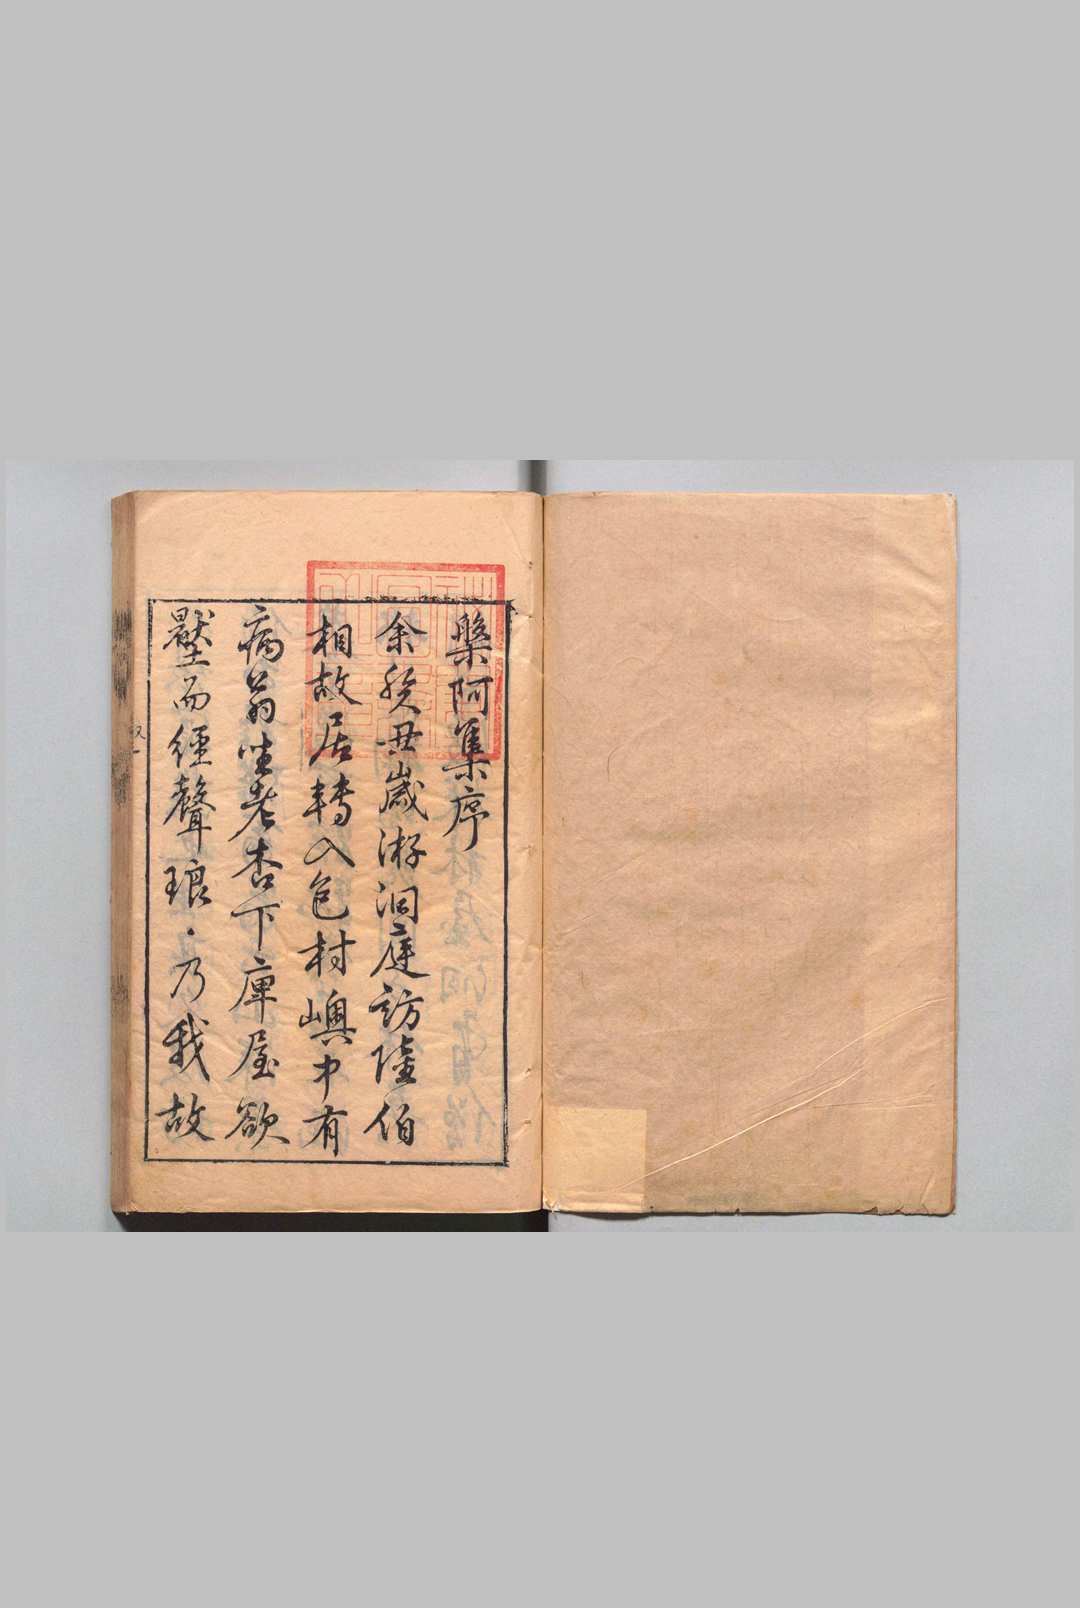 槃阿集序
余癸丑歲游洞庭訪陸伯
相故居轉入包村嶼中有
病翁坐老杏下庫屋欲
壓而經聲琅〻乃我故